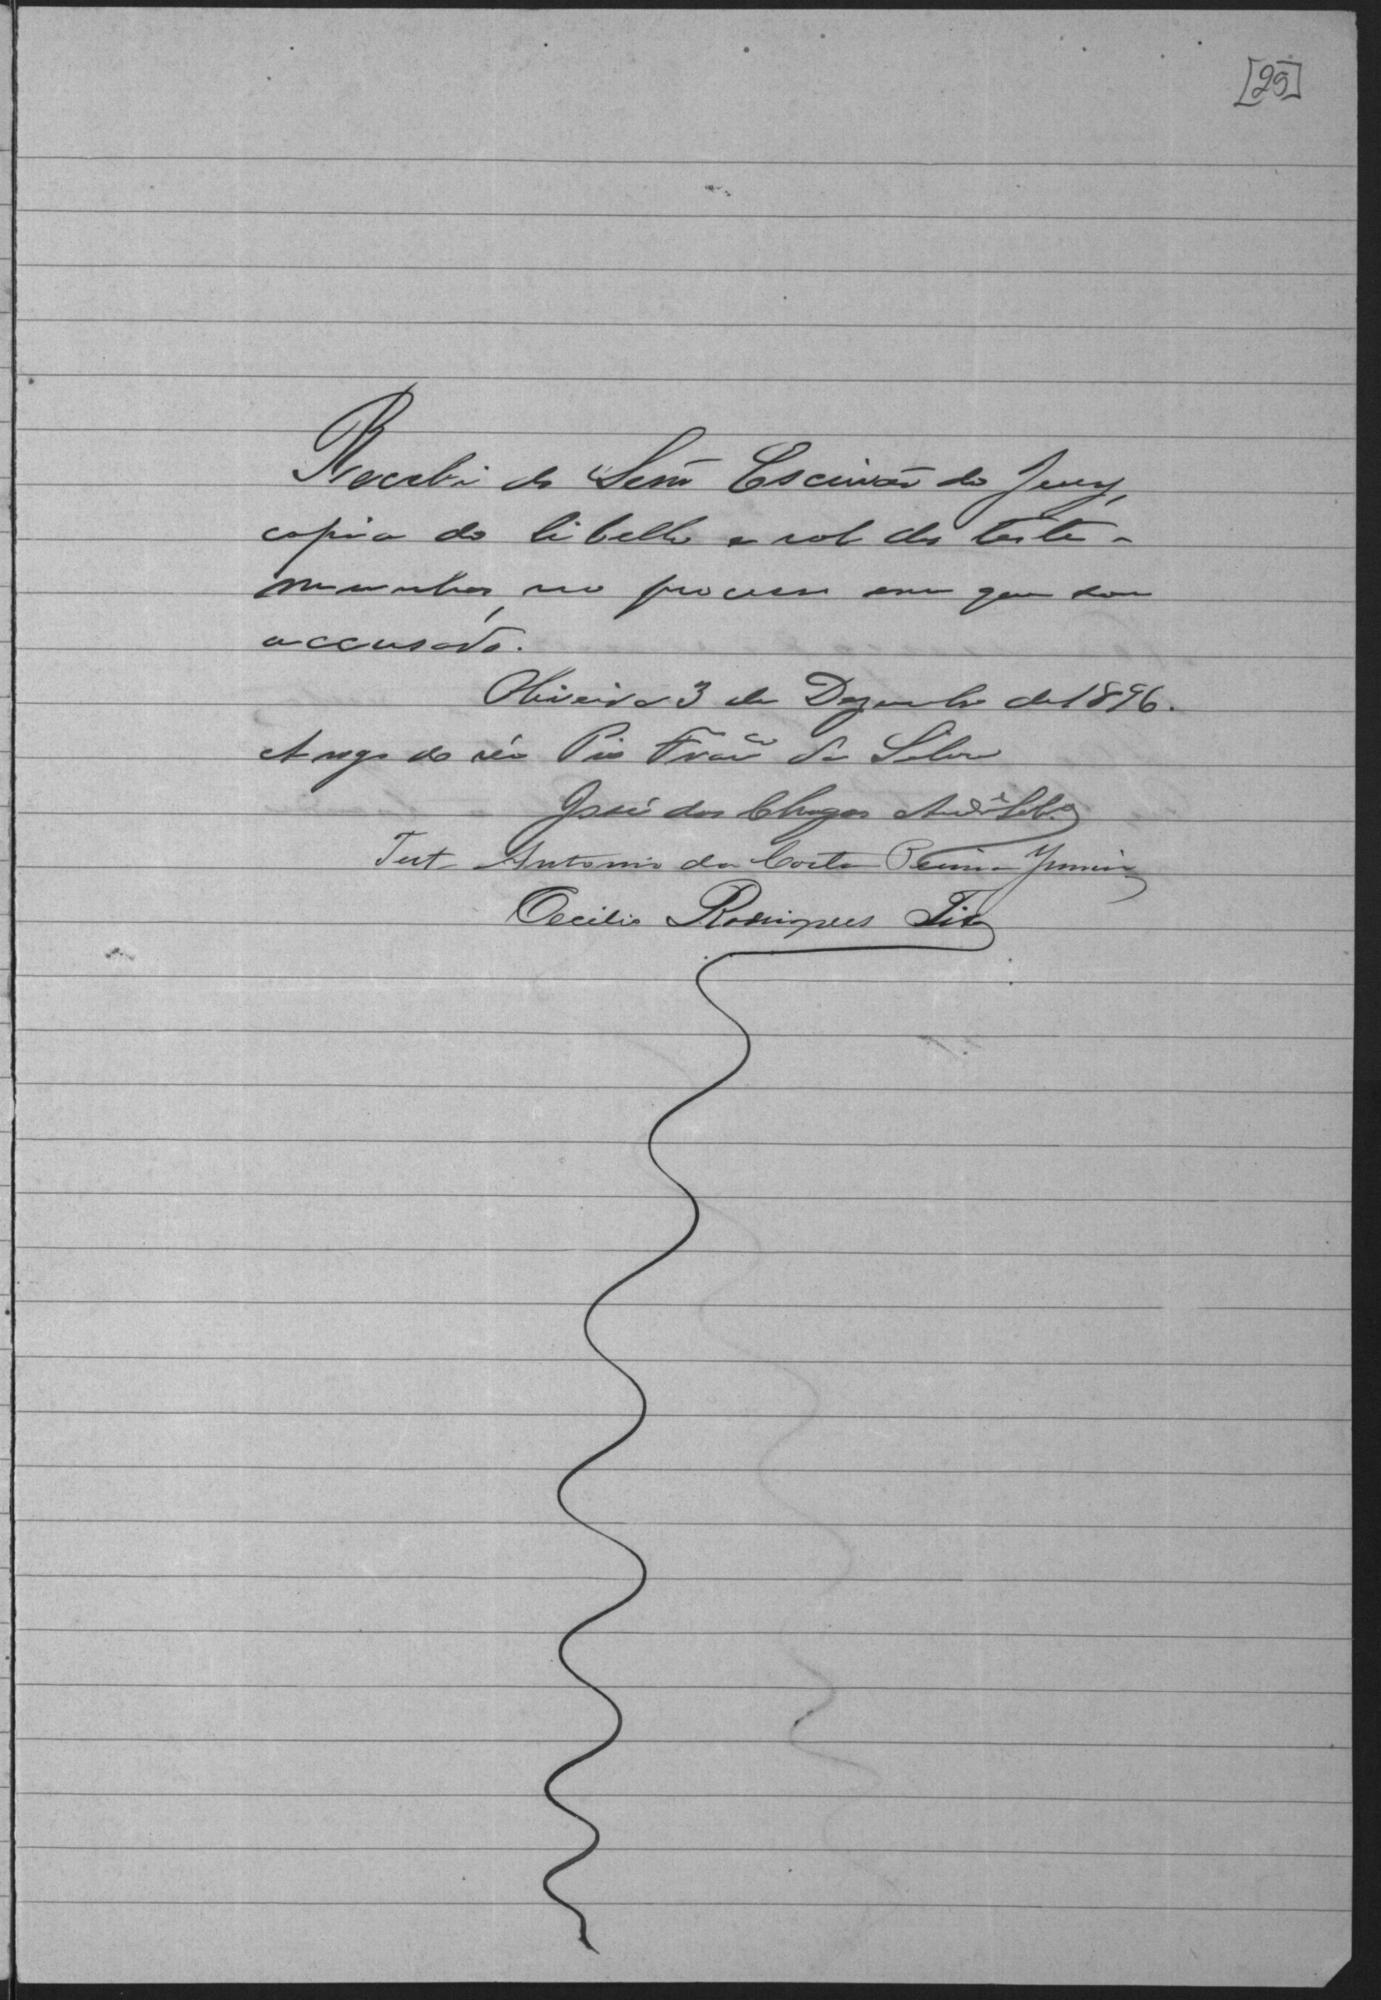 [25]
Recebi do Senr Escrivão do Jury,
copia do libello e rol das teste-
munhas, no processo em que sou
accusado.
Oliveira 3 de Dezembro de 1896.
A rogo do réo Pio da Silva
José das Chagas
Test Antonio da Costa Pereira Junior
Cecilio Rodrigues